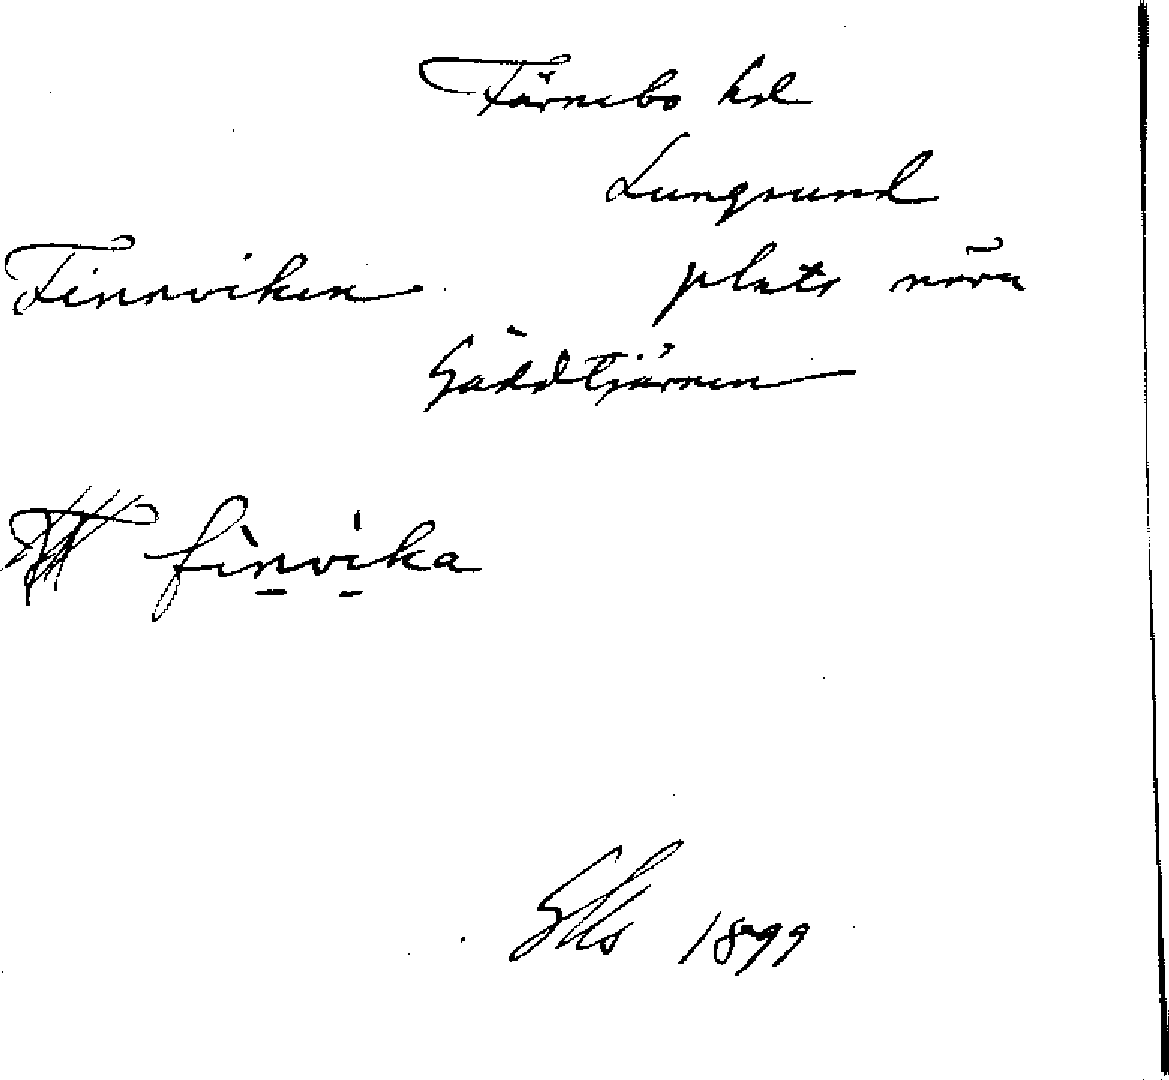 Färnebo hd
Lungsund
Finnviken plats nära
Gäddtjärnen
finvika
1899